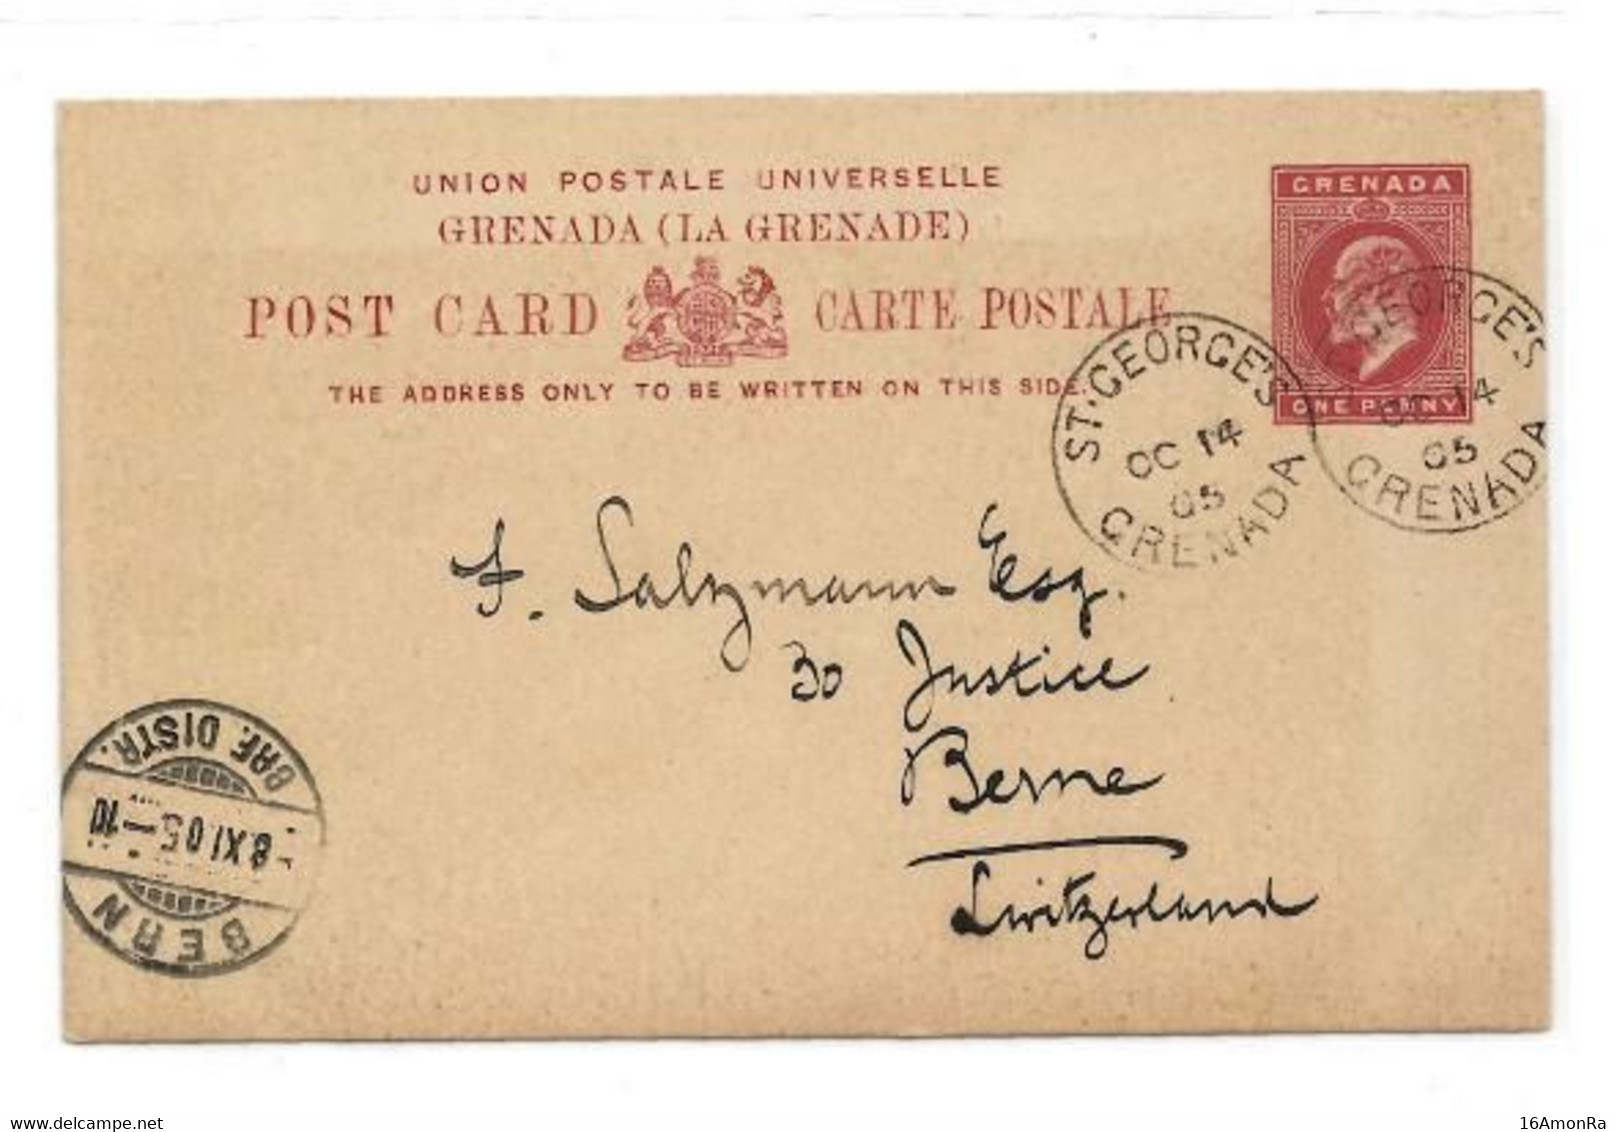 UNION POSTALE UNIVERSELLE
GRENADA (LA GRENADE)
POST CARD CARTE POSTALE
THE ADDRESS ONLY TO BE WRITTEN ON THIS SIDE.
GRENADA
ONE PENNY
ST. GEORGE'S
OC 14
05
GRENADA
GEORGE'S
OC 14
05
GRENADA
F. Salzmann Esq.
30 Justice
Berne
Switzerland
BERN
8.XI.05.-10
BRF. DISTR.
16AmonRa